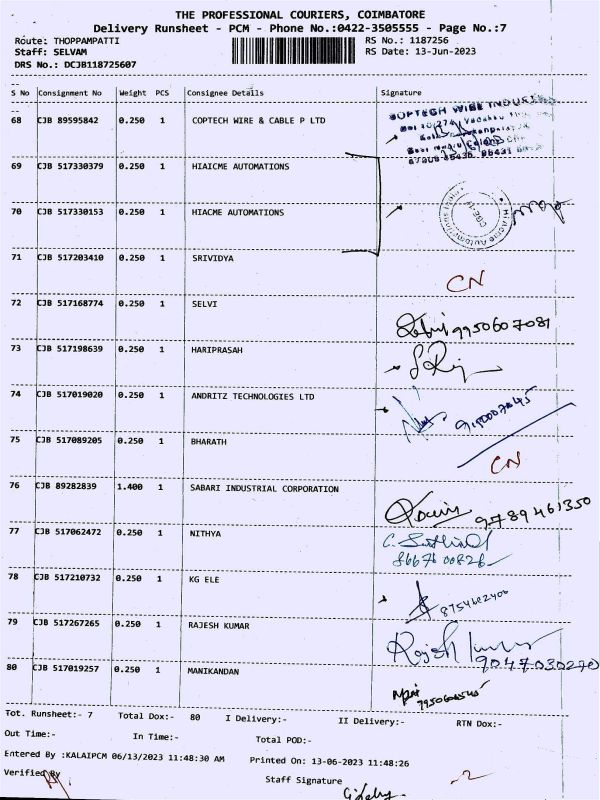 THE PROFESSIONAL COURIERS, COIMBATORE
Delivery Runsheet - PCM - Phone No.:0422-3505555 - Page No.:7
Route: THOPPAMPATTI RS No.: 1187256
Staff: SELVAM RS Date: 13-Jun-2023
DRS No.: DCJB118725607
S No Consignment No Weight PCS Consignee Details Signature
68 CJB 89595842 0.250 1 COPTECH WIRE & CABLE P LTD
69 CJB 517330379 0.250 1 HIAICME AUTOMATIONS
70 CJB 517330153 0.250 1 HIACME AUTOMATIONS
71 CJB 517203410 0.250 1 SRIVIDYA CN
72 CJB 517168774 0.250 1 SELVI 9950607081
73 CJB 517198639 0.250 1 HARIPRASAH
74 CJB 517019020 0.250 1 ANDRITZ TECHNOLOGIES LTD
75 CJB 517089205 0.250 1 BHARATH CN
76 CJB 89282839 1.400 1 SABARI INDUSTRIAL CORPORATION 9789461350
77 CJB 517062472 0.250 1 NITHYA 86676 00826
78 CJB 517210732 0.250 1 KG ELE 8754602400
79 CJB 517267265 0.250 1 RAJESH KUMAR Rajesh Kumar 9047030270
80 CJB 517019257 0.250 1 MANIKANDAN
Tot. Runsheet:- 7 Total Dox:- 80 I Delivery:- II Delivery:- RTN Dox:-
Out Time:- In Time:- Total POD:-
Entered By :KALAIPCM 06/13/2023 11:48:30 AM Printed On: 13-06-2023 11:48:26
Verified By Staff Signature